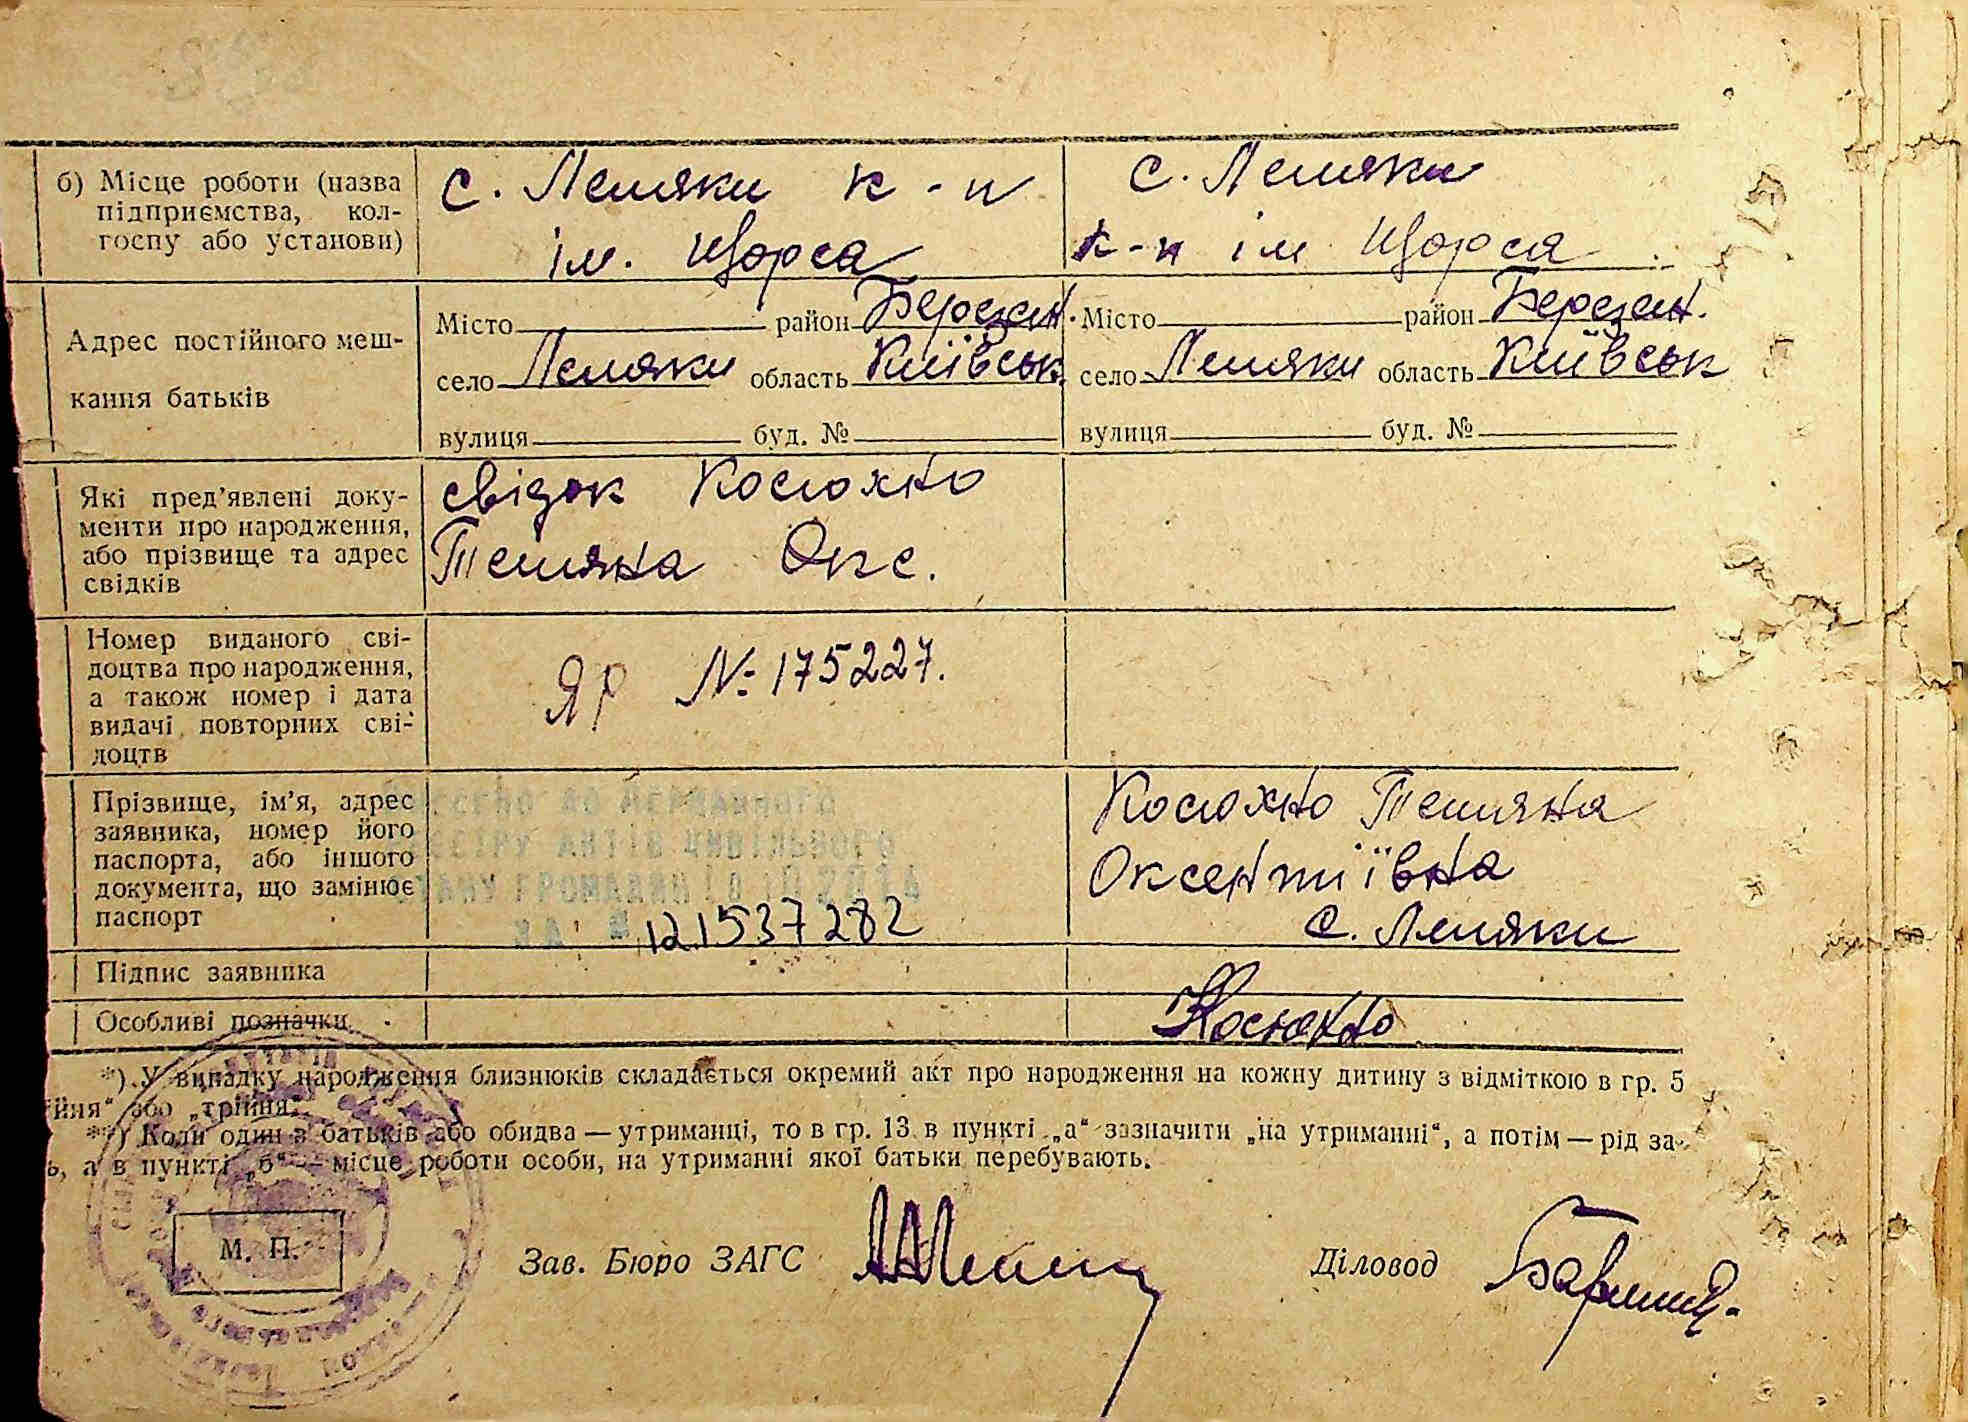 б) Місце роботи (назва
підприємства, кол-
госпу або установи)
с. Лемяки к-п
ім. Щорса
с. Лемяки
к-п ім Щорса
Адрес постійного меш-
кання батьків
Місто район Березан.
село Лемяки область Київськ.
вулиця буд. №
Місто район Березан.
село Лемяки область Київськ
вулиця буд. №
Які пред’явлені доку-
менти про народження,
або прізвище та адрес
свідків
свідок Косюхно
Тетяна Окс.
Номер виданого сві-
доцтва про народження,
а також номер і дата
видачі повторних сві-
доцтв
ЯР № 175227.
Прізвище, ім’я, адрес
заявника, номер його
паспорта, або іншого
документа, що замінює
паспорт
до Державного
актів цивільного
стану громадян
за № 121537282
Косюхно Тетяна
Оксентіївна
с. Лемяки
Підпис заявника
Особливі позначки
Косюхно
*) У випадку народження близнюків складається окремий акт про народження на кожну дитину з відміткою в гр. 5
йня“ або „трійня“.
**) Коли один з батьків або обидва — утриманці, то в гр. 13 в пункті „а“ зазначити „на утриманні“, а потім — рід за-
ь, а в пункті „б“ — місце роботи особи, на утриманні якої батьки перебувають.
М. П.
Зав. Бюро ЗАГС
Діловод